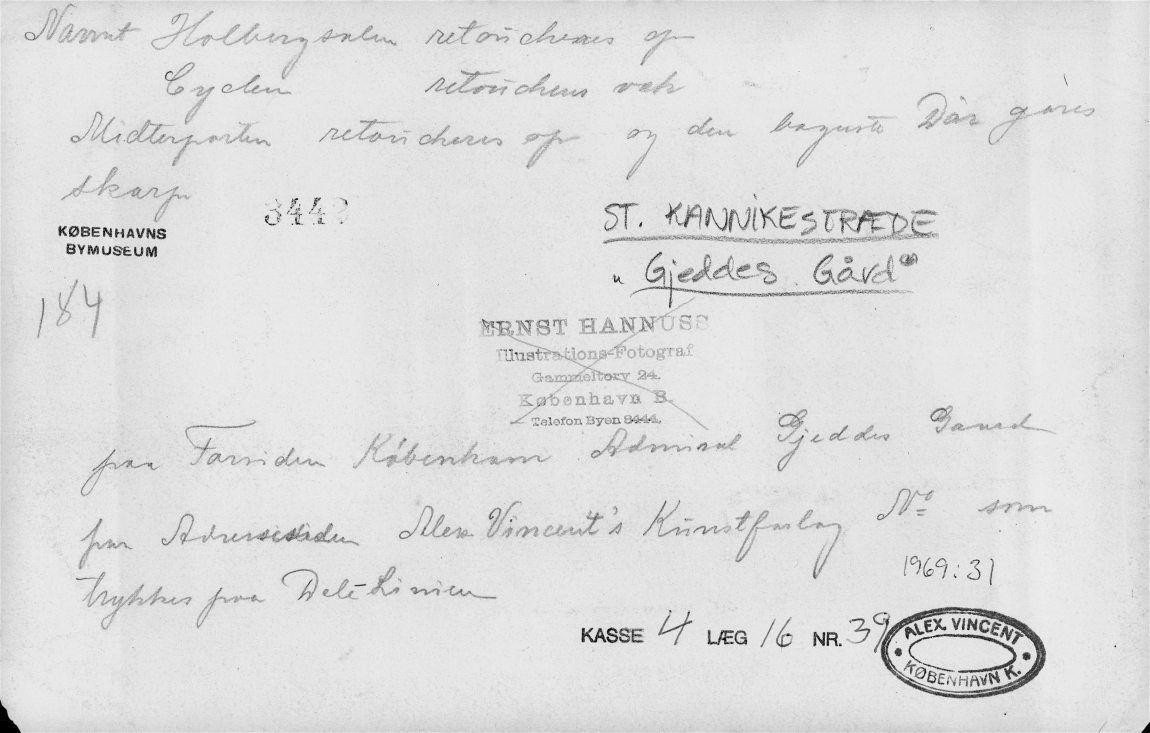 Navnet Holbergsalen retoucheres op
Cyclen retoucheres væk
Midterporten retoucheres op og den bageste Dør gøres
skarp
3442
KØBENHAVNS
BYMUSEUM
ST. KANNIKESTRÆDE
"Gjeddes Gård"
184
ERNST HANNUSS
Illustrations-Fotograf
Gammeltorv 24.
København B.
Telefon Byen 8444.
paa Forsiden København Admiral Gjeddes Gaard
paa Adressesiden Alex Vincent's Kunstforlag No som
trykkes paa Dele Linien
1969:31
KASSE 4 LÆG 16 NR. 39
ALEX. VINCENT
KØBENHAVN K.